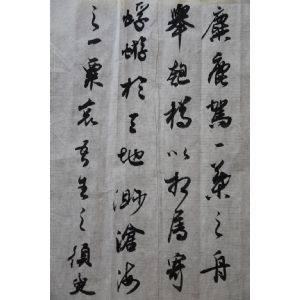 麋鹿駕一葉之舟
舉匏樽以相屬寄
蜉蝣於天地渺滄海
之一粟哀吾生之須臾